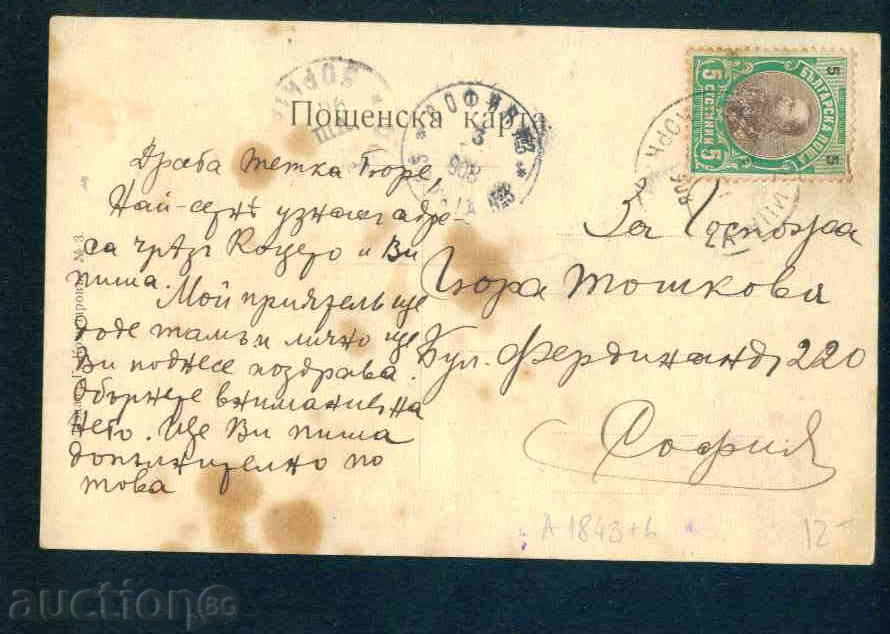 Пощенска карта
Драга тетка Гюре,
Най-сетнѣ узнах адре-
са чрѣзъ Коцето и Ви
пиша.
Мой приятель ще
доде тамъ и лично ще
Ви поднесе поздрава.
Обърнете внимание на
него. Ще Ви пиша
допълнително по
това
За Госпожа
Гюра Тошкова
Бул. Фердинандъ 220
София
БЪЛГАРСКА ПОЩА
5 СТОТИНКИ 5
5 5
СОФИЯ
3
908
№ 3.
A 1843+h
12-
auction BG